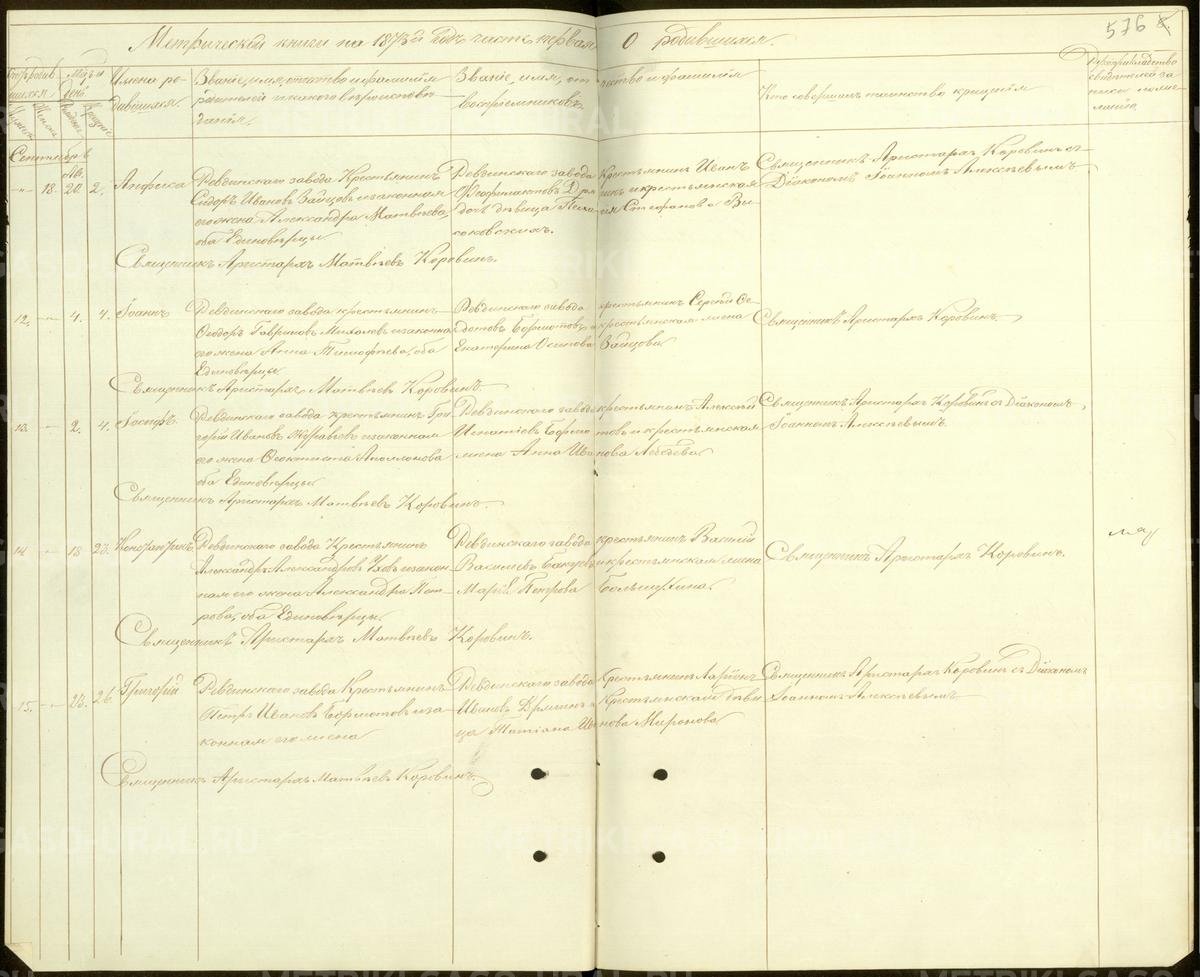 576
Метрической книги на 1873й годъ часть первая О родившихся.
Счетъ родившихся
Мѣсяцъ и день
Имена родившихся.
Званіе, имя, отчество и фамилія
родителей и какого вѣроисповѣ-
данія.
Званіе, имя, отчество и фамилія
воспріемниковъ.
Кто совершалъ таинство крещенія
Рукоприкладство
свидѣтелей за-
писи по же-
ланію.
Сентябрь
18. 20. 2. Анфиса
Ревдинскаго завода Крестьянинъ
Сидоръ Ивановъ Зайцовъ и законная
его жена Александра Матвѣева
оба Единовѣрцы
Ревдинскаго завода Крестьянинъ Иванъ
Феофилактовъ и крестьянская
дочь дѣвица Стефанова Вы-
соковскихъ.
Священникъ Аристархъ Коровинъ съ
Діакономъ Іоанномъ Алексѣевымъ
Священникъ Аристархъ Матвѣевъ Коровинъ.
12. 4. 4. Іоаннъ
Ревдинскаго завода крестьянинъ
Ѳеодоръ Гавриловъ Михалевъ и законная
его жена Анна Тимофѣева, оба
Единовѣрцы
Ревдинскаго завода крестьянинъ Сергѣй Ѳе-
дотовъ и крестьянская жена
Екатерина Осипова Зайцова
Священникъ Аристархъ Коровинъ
Священникъ Аристархъ Матвѣевъ Коровинъ.
13. 2. 4. Іосифъ
Ревдинскаго завода крестьянинъ Гри-
горій Ивановъ Журавлевъ и законная
его жена Ѳеоктиста Аполлонова
оба Единовѣрцы
Ревдинскаго завода крестьянинъ Алексѣй
Игнатіевъ и крестьянская
жена Анна Иванова Лебедева
Священникъ Аристархъ Коровинъ съ Діакономъ
Іоанномъ Алексѣевымъ.
Священникъ Аристархъ Матвѣевъ Коровинъ.
14 18 23.
Ревдинскаго завода Крестьянинъ
Александръ Александровъ и закон-
ная его жена Александра Пет-
рова, оба Единовѣрцы.
Ревдинскаго завода крестьянинъ Василій
Васильевъ и крестьянская жена
Марія Петрова
Священникъ Аристархъ Коровинъ.
Священникъ Аристархъ Матвѣевъ Коровинъ.
15. 23. 26. Григорій
Ревдинскаго завода Крестьянинъ
Петръ Ивановъ и за-
конная его жена
Ревдинскаго завода Крестьянинъ Ларіонъ
Ивановъ и Крестьянская дѣви-
ца Татіана Иванова Миронова
Священникъ Аристархъ Коровинъ съ Діакономъ
Іоанномъ Алексѣевымъ
Священникъ Аристархъ Матвѣевъ Коровинъ.
METRIKI.GASO-URAL.RU